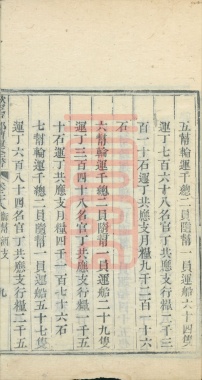 五幇輪運千總二員隨幇一員運船六十四隻
運丁七百六十八名官丁共應支行糧二千三
百一十石運丁共應支月糧九千二百一十六
石
六幇輪運千總二員隨幇一員運船二十九隻
運丁三百四十八名官丁共應支行糧一千五
十石運丁共應支月糧四千一百七十六石
七幇輪運千總二員隨幇一員運船五十七隻
運丁六百八十四名官丁共應支行糧二千五